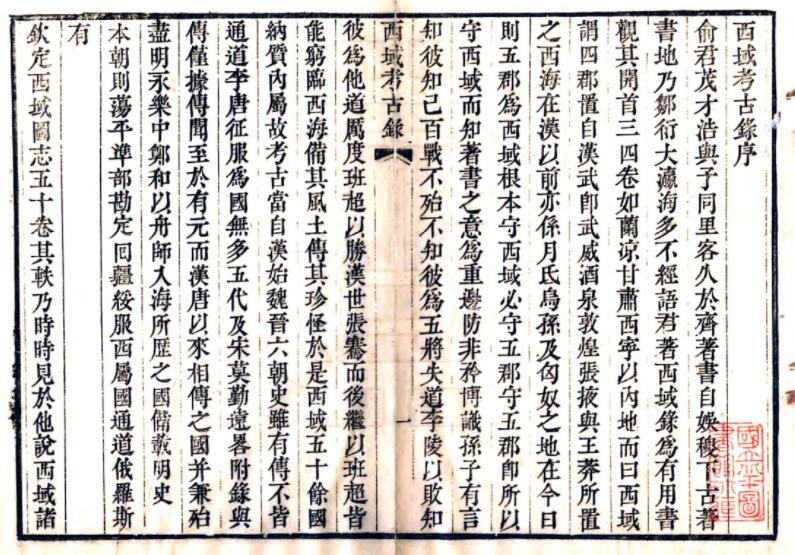 西域考古錄序
俞君茂才浩與予同里客久於齊著書自娛稷下古著
書地乃鄒衍大瀛海多不經語君著西域錄爲有用書
觀其開首三四卷如蘭凉甘肅西寧以內地而曰西域
謂四郡置自漢武卽武威酒泉敦煌張掖與王莽所置
之西海在漢以前亦係月氏烏孫及匈奴之地在今日
則五郡爲西域根本守西域必守五郡守五郡卽所以
守西域而知著書之意爲重邊防非矜博識孫子有言
知彼知己百戰不殆不知彼爲五將失道李陵以敗知
西域考古錄
一
彼爲他道厲度班超以勝漢世張騫而後繼以班超皆
能窮臨西海備其風土傳其珍怪於是西域五十餘國
納質內屬故考古當自漢始魏晉六朝史雖有傳不皆
通道李唐征服爲國無多五代及宋莫勤遠畧附錄與
傳僅據傳聞至於有元而漢唐以來相傳之國并兼殆
盡明永樂中鄭和以舟師入海所歷之國備載明史
本朝則蕩平準部勘定回疆綏服西屬國通道俄羅斯
有
欽定西域圖志五十卷其軼乃時時見於他說西域諸